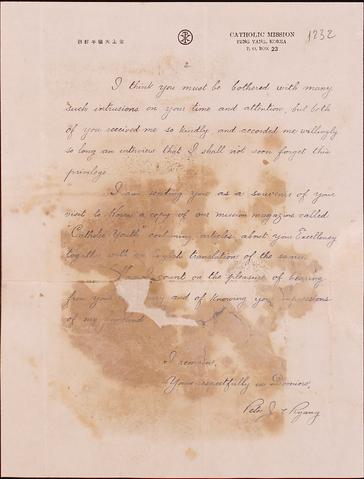 CATHOLIC MISSION
PENG YANG, KOREA
P. O. BOX 23
1232
2
I think you must be bothered with many
such intrusions on your time and attention, but both
of you received me so kindly, and accorded me willingly
so long an interview that I shall not soon forget this
privilege.
I am sending you as a souvenir of your
visit to Korea a copy of our mission magazine called
"Catholic Youth" containing articles about your Excellency
together with an English translation of the same.
count on the pleasure of hearing
from your and of knowing your impressions
of my
I remain,
Yours respectfully in Domino,
Peter Ryang